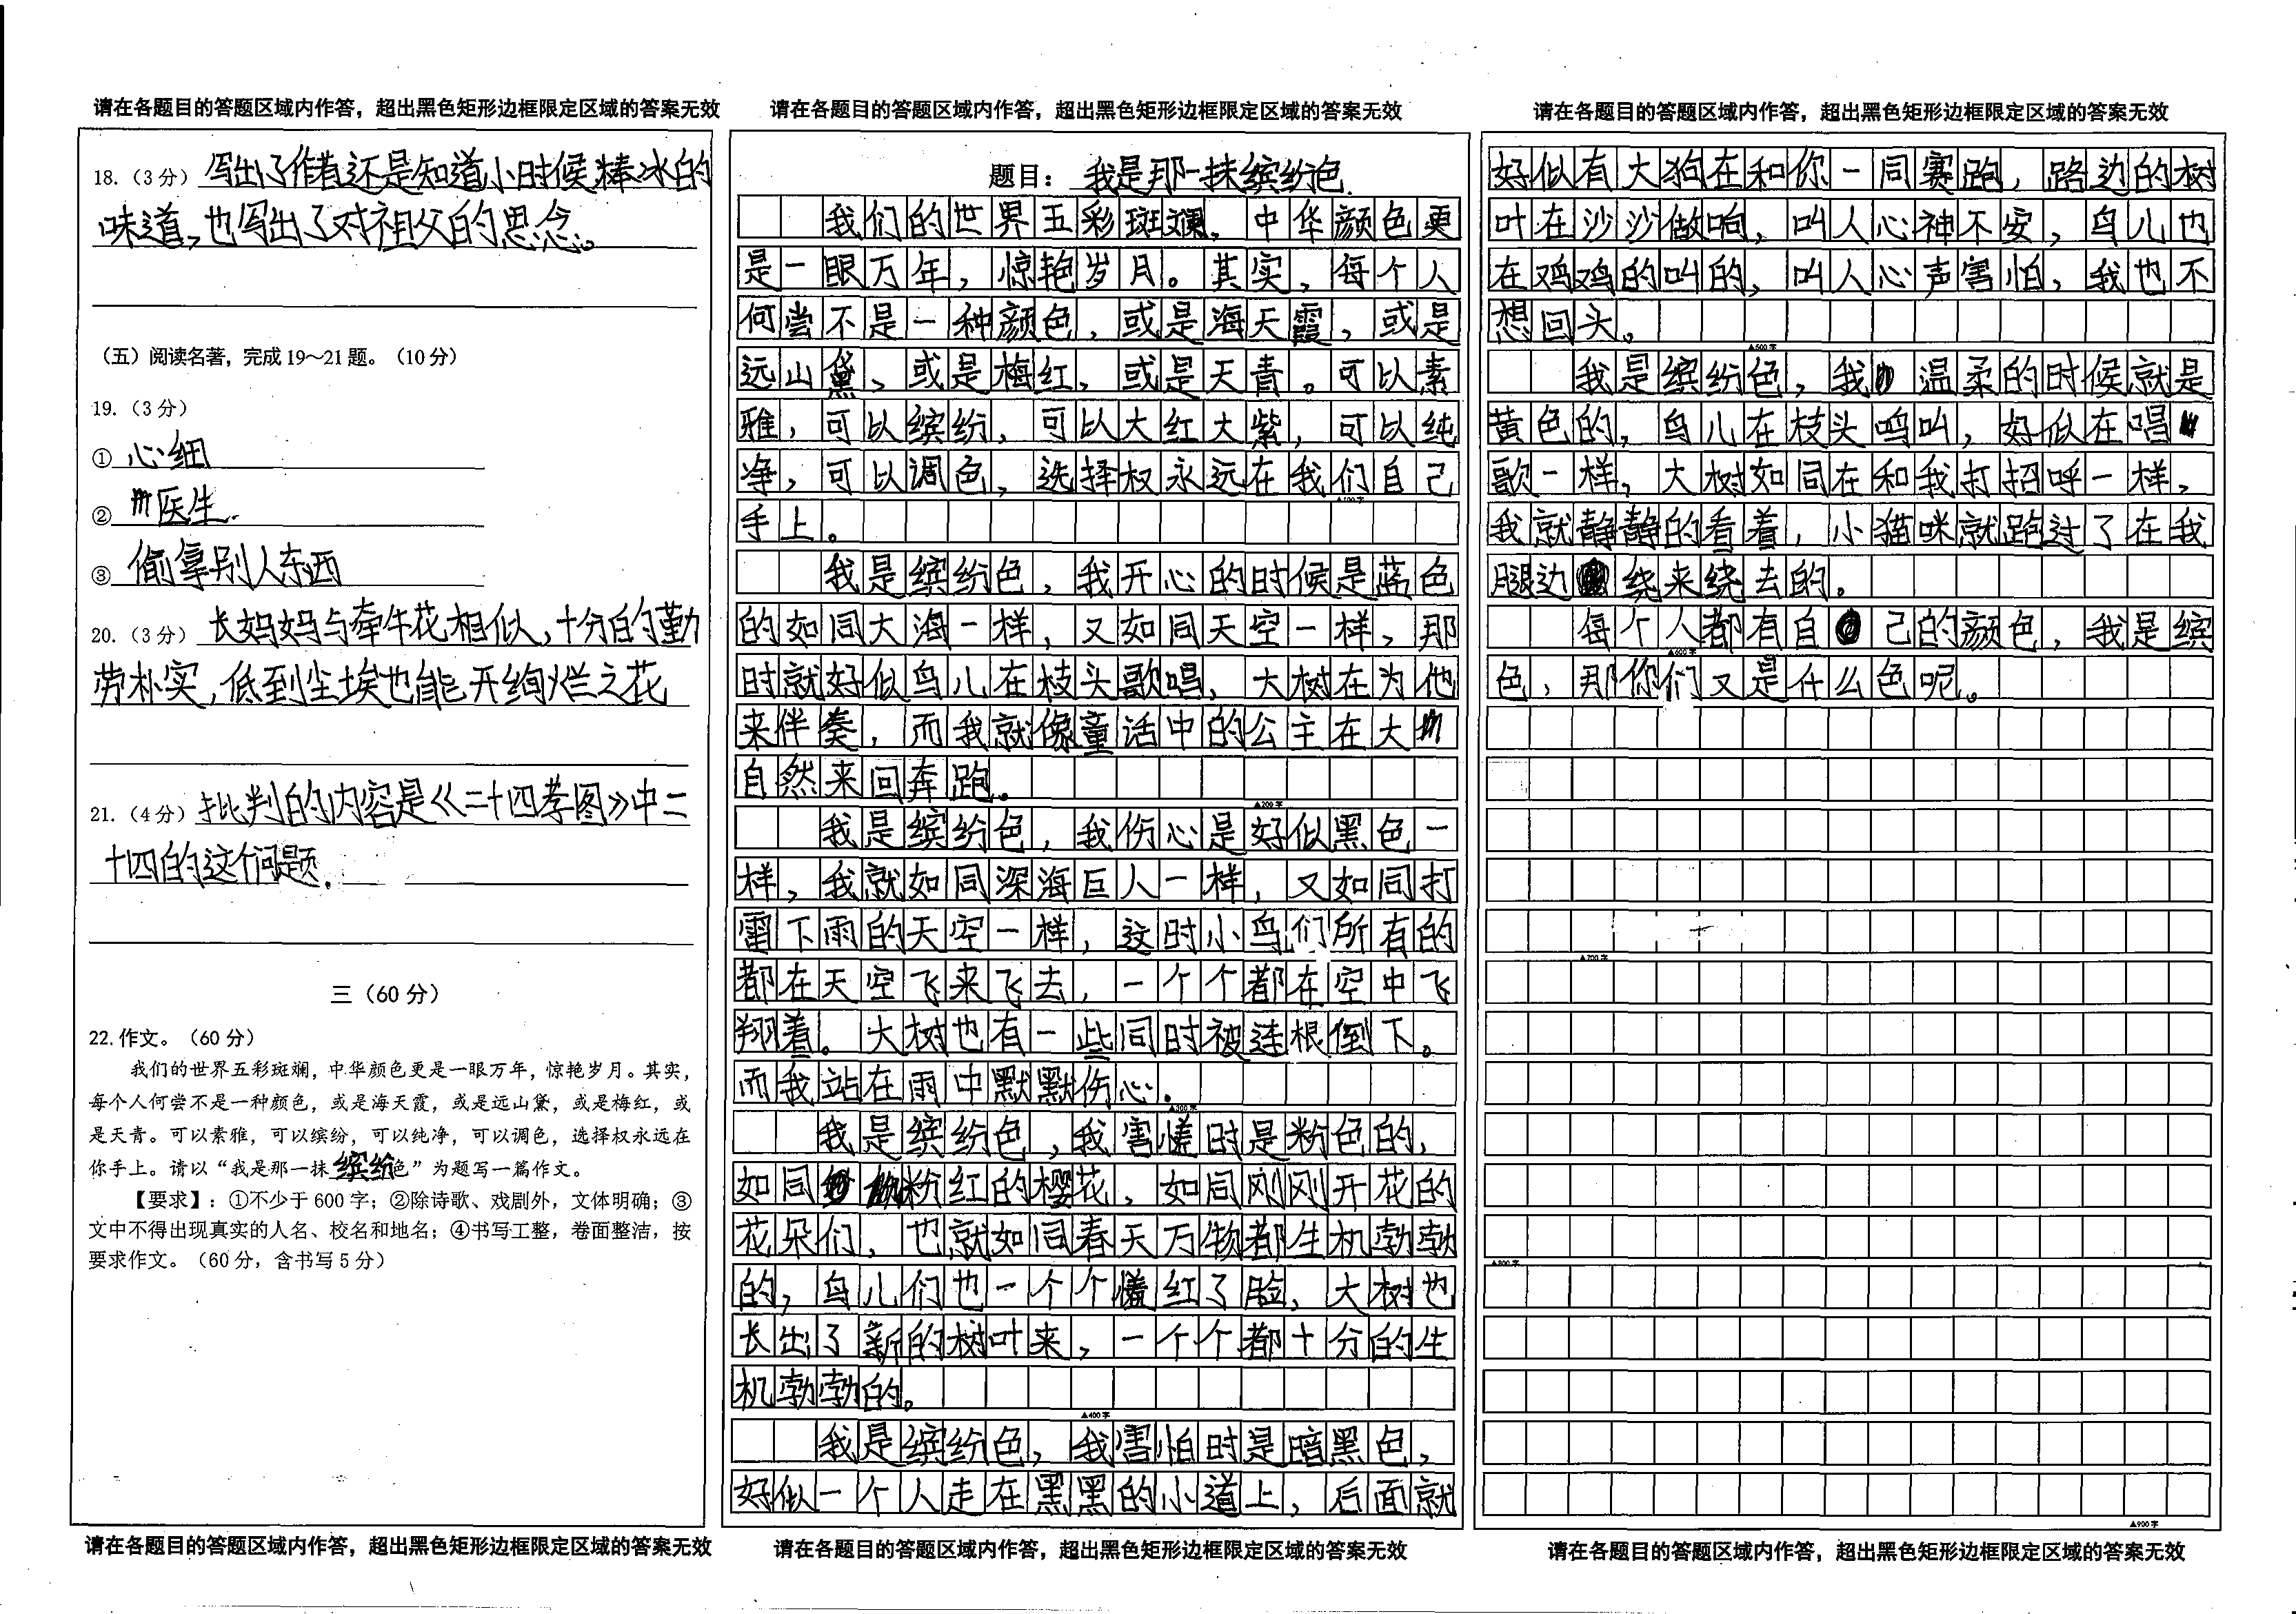 请在各题目的答题区域内作答，超出黑色矩形边框限定区域的答案无效
18.（3分）写出了作者还是知道小时候棒冰的
味道，也写出了对祖父的思念。
（五）阅读名著，完成19～21题。（10分）
19.（3分）
① 心细
② 医生.
③ 偷拿别人东西
20.（3分）长妈妈与牵牛花相似，十分的勤
劳朴实，低到尘埃也能开绚烂之花
21.（4分）批判的内容是《二十四孝图》中二
十四的这个问题.
三（60分）
22.作文。（60分）
我们的世界五彩斑斓，中华颜色更是一眼万年，惊艳岁月。其实，
每个人何尝不是一种颜色，或是海天霞，或是远山黛，或是梅红，或
是天青。可以素雅，可以缤纷，可以纯净，可以调色，选择权永远在
你手上。请以“我是那一抹缤纷色”为题写一篇作文。
【要求】：①不少于600字；②除诗歌、戏剧外，文体明确；③
文中不得出现真实的人名、校名和地名；④书写工整，卷面整洁，按
要求作文。（60分，含书写5分）
请在各题目的答题区域内作答，超出黑色矩形边框限定区域的答案无效
请在各题目的答题区域内作答，超出黑色矩形边框限定区域的答案无效
题目：我是那一抹缤纷色.
我们的世界五彩斑斓，中华颜色更
是一眼万年，惊艳岁月。其实，每个人
何尝不是一种颜色，或是海天霞，或是
远山黛，或是梅红，或是天青。可以素
雅，可以缤纷，可以大红大紫，可以纯
净，可以调色，选择权永远在我们自己
▲100字
手上。
我是缤纷色，我开心的时候是蓝色
的如同大海一样，又如同天空一样，那
时就好似鸟儿在枝头歌唱，大树在为他
来伴奏，而我就像童话中的公主在大
自然来回奔跑。
▲200字
我是缤纷色，我伤心是好似黑色一
样，我就如同深海巨人一样，又如同打
雷下雨的天空一样，这时小鸟们所有的
都在天空飞来飞去，一个个都在空中飞
翔着。大树也有一些同时被连根倒下。
而我站在雨中默默伤心.
▲300字
我是缤纷色，我害馐时是粉色的，
如同粉红的樱花，如同刚刚开花的
花朵们，也就如同春天万物都生机勃勃
的，鸟儿们也一个个馐红了脸，大树也
长出了新的树叶来，一个个都十分的生
机勃勃的。
▲400字
我是缤纷色，我害怕时是暗黑色，
好似一个人走在黑黑的小道上，后面就
请在各题目的答题区域内作答，超出黑色矩形边框限定区域的答案无效
请在各题目的答题区域内作答，超出黑色矩形边框限定区域的答案无效
好似有大狗在和你一同赛跑，路边的树
叶在沙沙做响，叫人心神不安，鸟儿也
在鸡鸡的叫的，叫人心声害怕，我也不
想回头。
▲500字
我是缤纷色，我温柔的时候就是
黄色的，鸟儿在枝头鸣叫，好似在唱
歌一样，大树如同在和我打招呼一样，
我就静静的看着，小猫咪就跑过了在我
腿边绕来绕去的。
每个人都有自己的颜色，我是缤
▲600字
色，那你们又是什么色呢。
▲700字
▲800字
▲900字
请在各题目的答题区域内作答，超出黑色矩形边框限定区域的答案无效